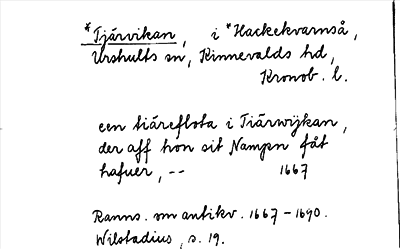 *Tjärvikan, i *Hackekvarnså,
Urshults sn, Kinnevalds hd,
Kronob. l.
een tiäreflota i Tiärwijkan,
der aff hon sit Nampn fåt
hafuer, -- 1667
Ranns. om antikv. 1667-1690.
Wilstadius, s. 19.